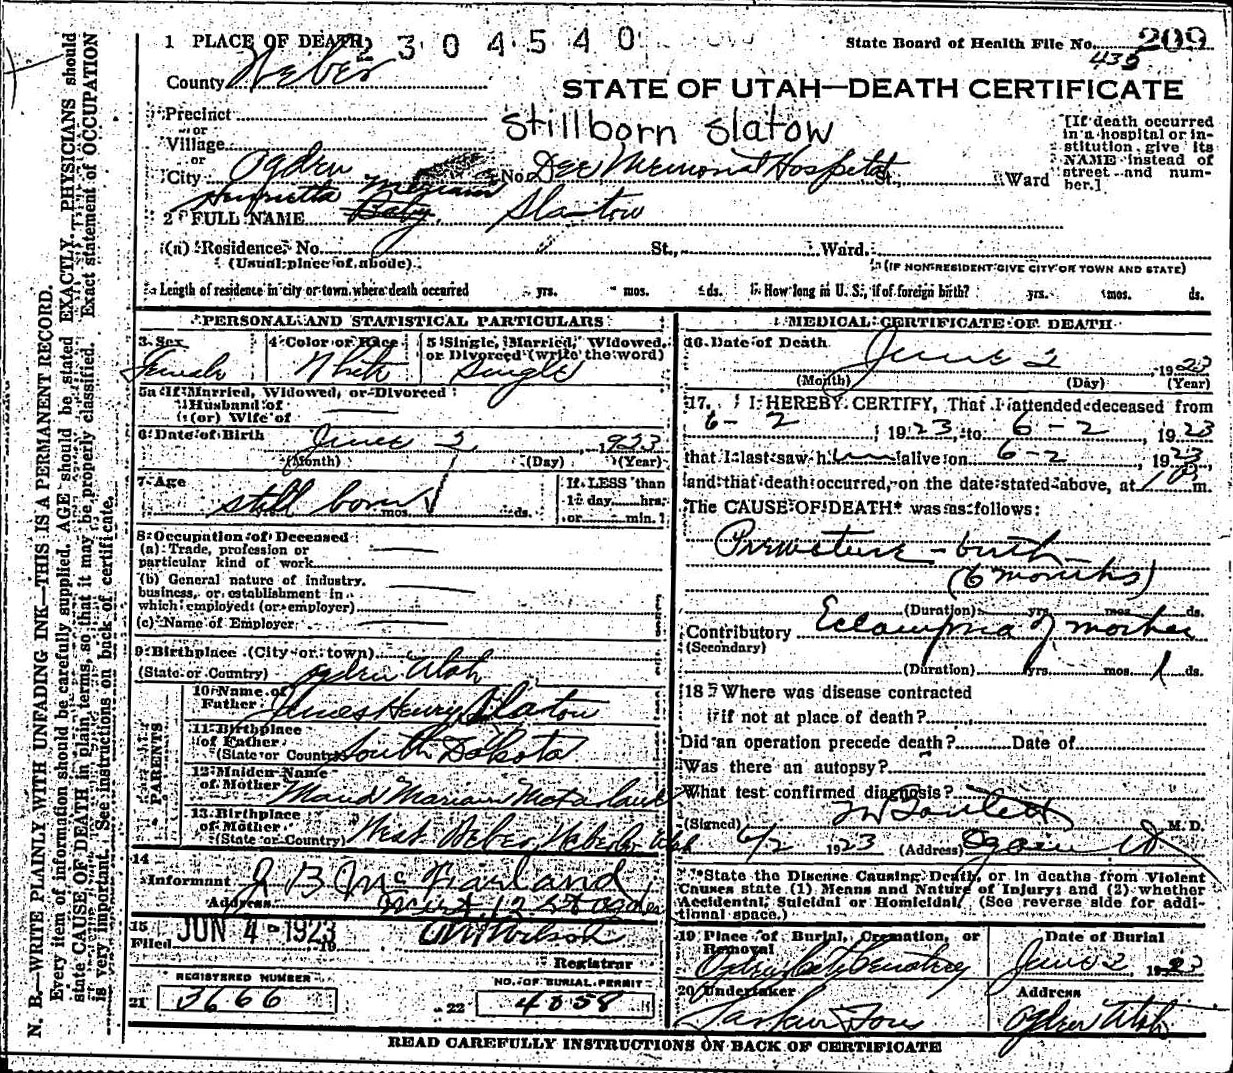 1 PLACE OF DEATH 2 3 0 4 5 4 0
State Board of Health File No. 209
435
County Weber
STATE OF UTAH—DEATH CERTIFICATE
Precinct
or
Village
Stillborn Slatow
or
City Ogden No. Dee Memorial Hospital St., Ward
[If death occurred in a hospital or in-
stitution, give its
NAME instead of
street and num-
ber.]
Henrietta
2 FULL NAME Baby Slantow
(a) Residence. No. St., Ward.
(Usual place of abode) (IF NON-RESIDENT GIVE CITY OR TOWN AND STATE)
Length of residence in city or town where death occurred yrs. mos. ds. How long in U. S., if of foreign birth? yrs. mos. ds.
PERSONAL AND STATISTICAL PARTICULARS
3 Sex Female
4 Color or Race White
5 Single, Married, Widowed, or Divorced (write the word) Single
5a If Married, Widowed, or Divorced
Husband of
(or) Wife of
6 Date of Birth June 2, 1923
(Month) (Day) (Year)
7 Age still born mos. ds.
If LESS than
1 day hrs.
or min.
8 Occupation of Deceased
(a) Trade, profession or
particular kind of work
(b) General nature of industry.
business, or establishment in
which employed (or employer)
(c) Name of Employer
9 Birthplace (City or town)
(State or Country) Ogden Utah
PARENTS
10 Name of
Father James Henry Slatow
11 Birthplace
of Father
(State or Country) South Dakota
12 Maiden Name
of Mother Maud Mariam
13 Birthplace
of Mother
(State or Country) West Weber, Weber Co Utah
14
Informant J B McFarland
Address 12 St Ogden
15
Filed JUN 4 - 1923 19
Wilson
Registrar
REGISTERED NUMBER
21 3666
NO. OF BURIAL PERMIT
22 4858
MEDICAL CERTIFICATE OF DEATH
16 Date of Death June 2, 1923
(Month) (Day) (Year)
17. I HEREBY CERTIFY, That I attended deceased from
6-2, 1923, to 6-2, 1923
that I last saw h alive on 6-2, 1923
and that death occurred, on the date stated above, at m.
The CAUSE OF DEATH* was as follows:
Premeture - birth
(6 months)
(Duration) yrs. mos. ds.
Contributory Eclampsia of mother
(Secondary)
(Duration) yrs. mos. 1 ds.
18 Where was disease contracted
if not at place of death?
Did an operation precede death? Date of
Was there an autopsy?
What test confirmed diagnosis?
(Signed) M. D.
6/2 1923 (Address) Ogden
*State the Disease Causing Death, or in deaths from Violent
Causes state (1) Means and Nature of Injury; and (2) whether
Accidental, Suicidal or Homicidal. (See reverse side for addi-
tional space.)
19 Place of Burial, Cremation, or
Removal
Ogden City Cemetery
Date of Burial
June 2, 1923
20 Undertaker
Larkin Sons
Address
Ogden Utah
READ CAREFULLY INSTRUCTIONS ON BACK OF CERTIFICATE
N. B.—WRITE PLAINLY WITH UNFADING INK—THIS IS A PERMANENT RECORD.
Every item of information should be carefully supplied. AGE should be stated EXACTLY. PHYSICIANS should
state CAUSE OF DEATH in plain terms, so that it may be properly classified. Exact statement of OCCUPATION
is very important. See instructions on back of certificate.